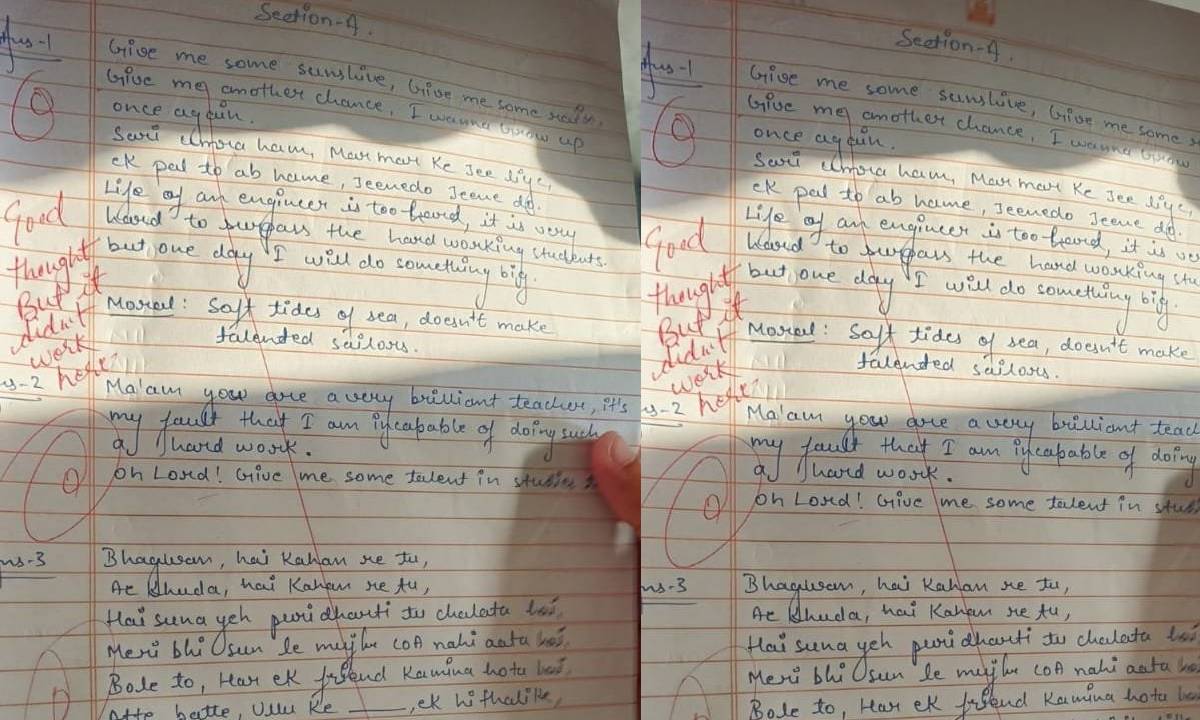 Section-A.
Ans-1
Give me some sunshine, Give me some rain,
Give me another chance, I wanna Grow up
once again.
Sari umra ham, Marmar Ke Jee liye,
ek pal to ab hame, Jeenedo Jeene do.
Life of an engineer is too hard, it is very
hard to surpass the hard working students.
but one day I will do something big.
Moral: Soft tides of sea, doesn't make
talented sailors.
0
Good
thought
But it
didn't
work
here!
ns-2
Ma'am you are a very brilliant teacher, it's
my fault that I am incapable of doing such
a hard work.
Oh Lord! Give me some talent in studies
0
ns-3
Bhagwan, hai Kahan re tu,
Ae Khuda, hai Kahan re tu,
Hai suna yeh puri dharti tu chalata hai,
Meri bhi sun le mujhe COA nahi aata hai,
Bole to, Har ek friend Kamina hota hai,
Atte batte, Ullu Ke ___, ek hi thalike,
0
Section-A.
Ans-1
Give me some sunshine, Give me some
Give me another chance, I wanna Grow
once again.
Sari umra ham, Marmar Ke Jee liye,
ek pal to ab hame, Jeenedo Jeene do.
Life of an engineer is too hard, it is ve
hard to surpass the hard working stu
but one day I will do something big.
Moral: Soft tides of sea, doesn't make
talented sailors.
0
Good
thought
But it
didn't
work
here!
ns-2
Ma'am you are a very brilliant teac
my fault that I am incapable of doing
a hard work.
Oh Lord! Give me some talent in stud
0
ns-3
Bhagwan, hai Kahan re tu,
Ae Khuda, hai Kahan re tu,
Hai suna yeh puri dharti tu chalata
Meri bhi sun le mujhe COA nahi aata
Bole to, Har ek friend Kamina hota